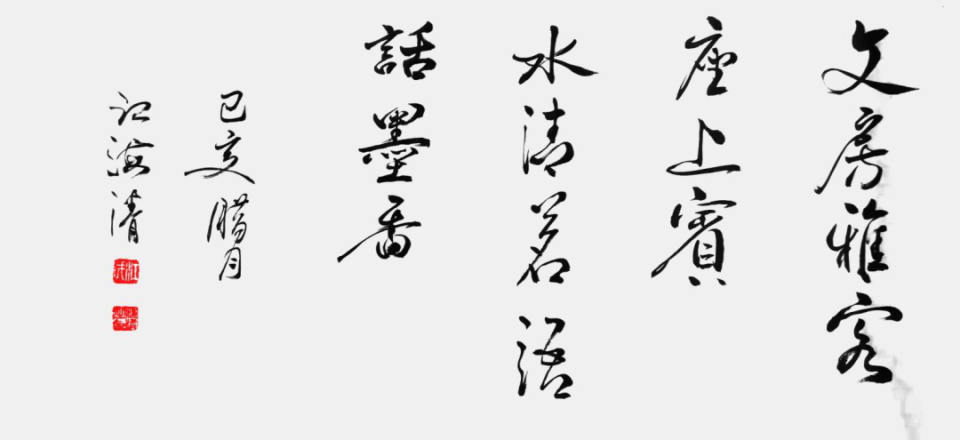 文房雅客
座上賓
水清茗
話墨香
己亥腊月
江海清